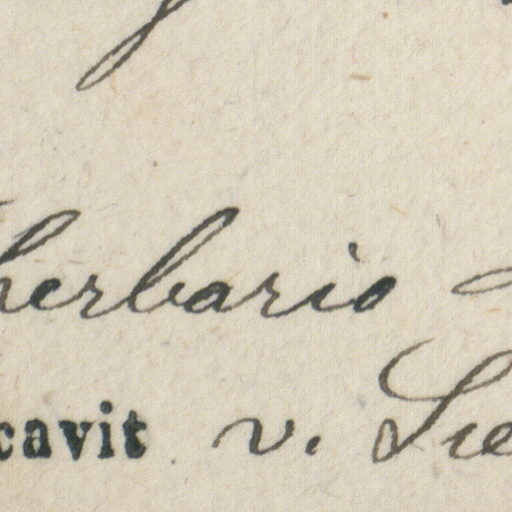 herbario
cavit v.